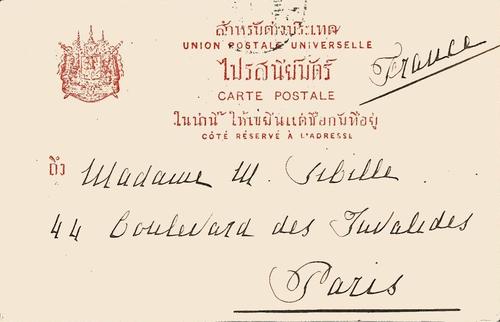 สำหรับต่างประเทศ
UNION POSTALE UNIVERSELLE
ไปรสนียบัตร์
CARTE POSTALE
ในน่านี้ ให้เขียนแต่ชื่อกับที่อยู่
CÔTÉ RÉSERVÉ À L'ADRESSE
France
ถึง Madame M. Sibille
44 Boulevard des Invalides
Paris